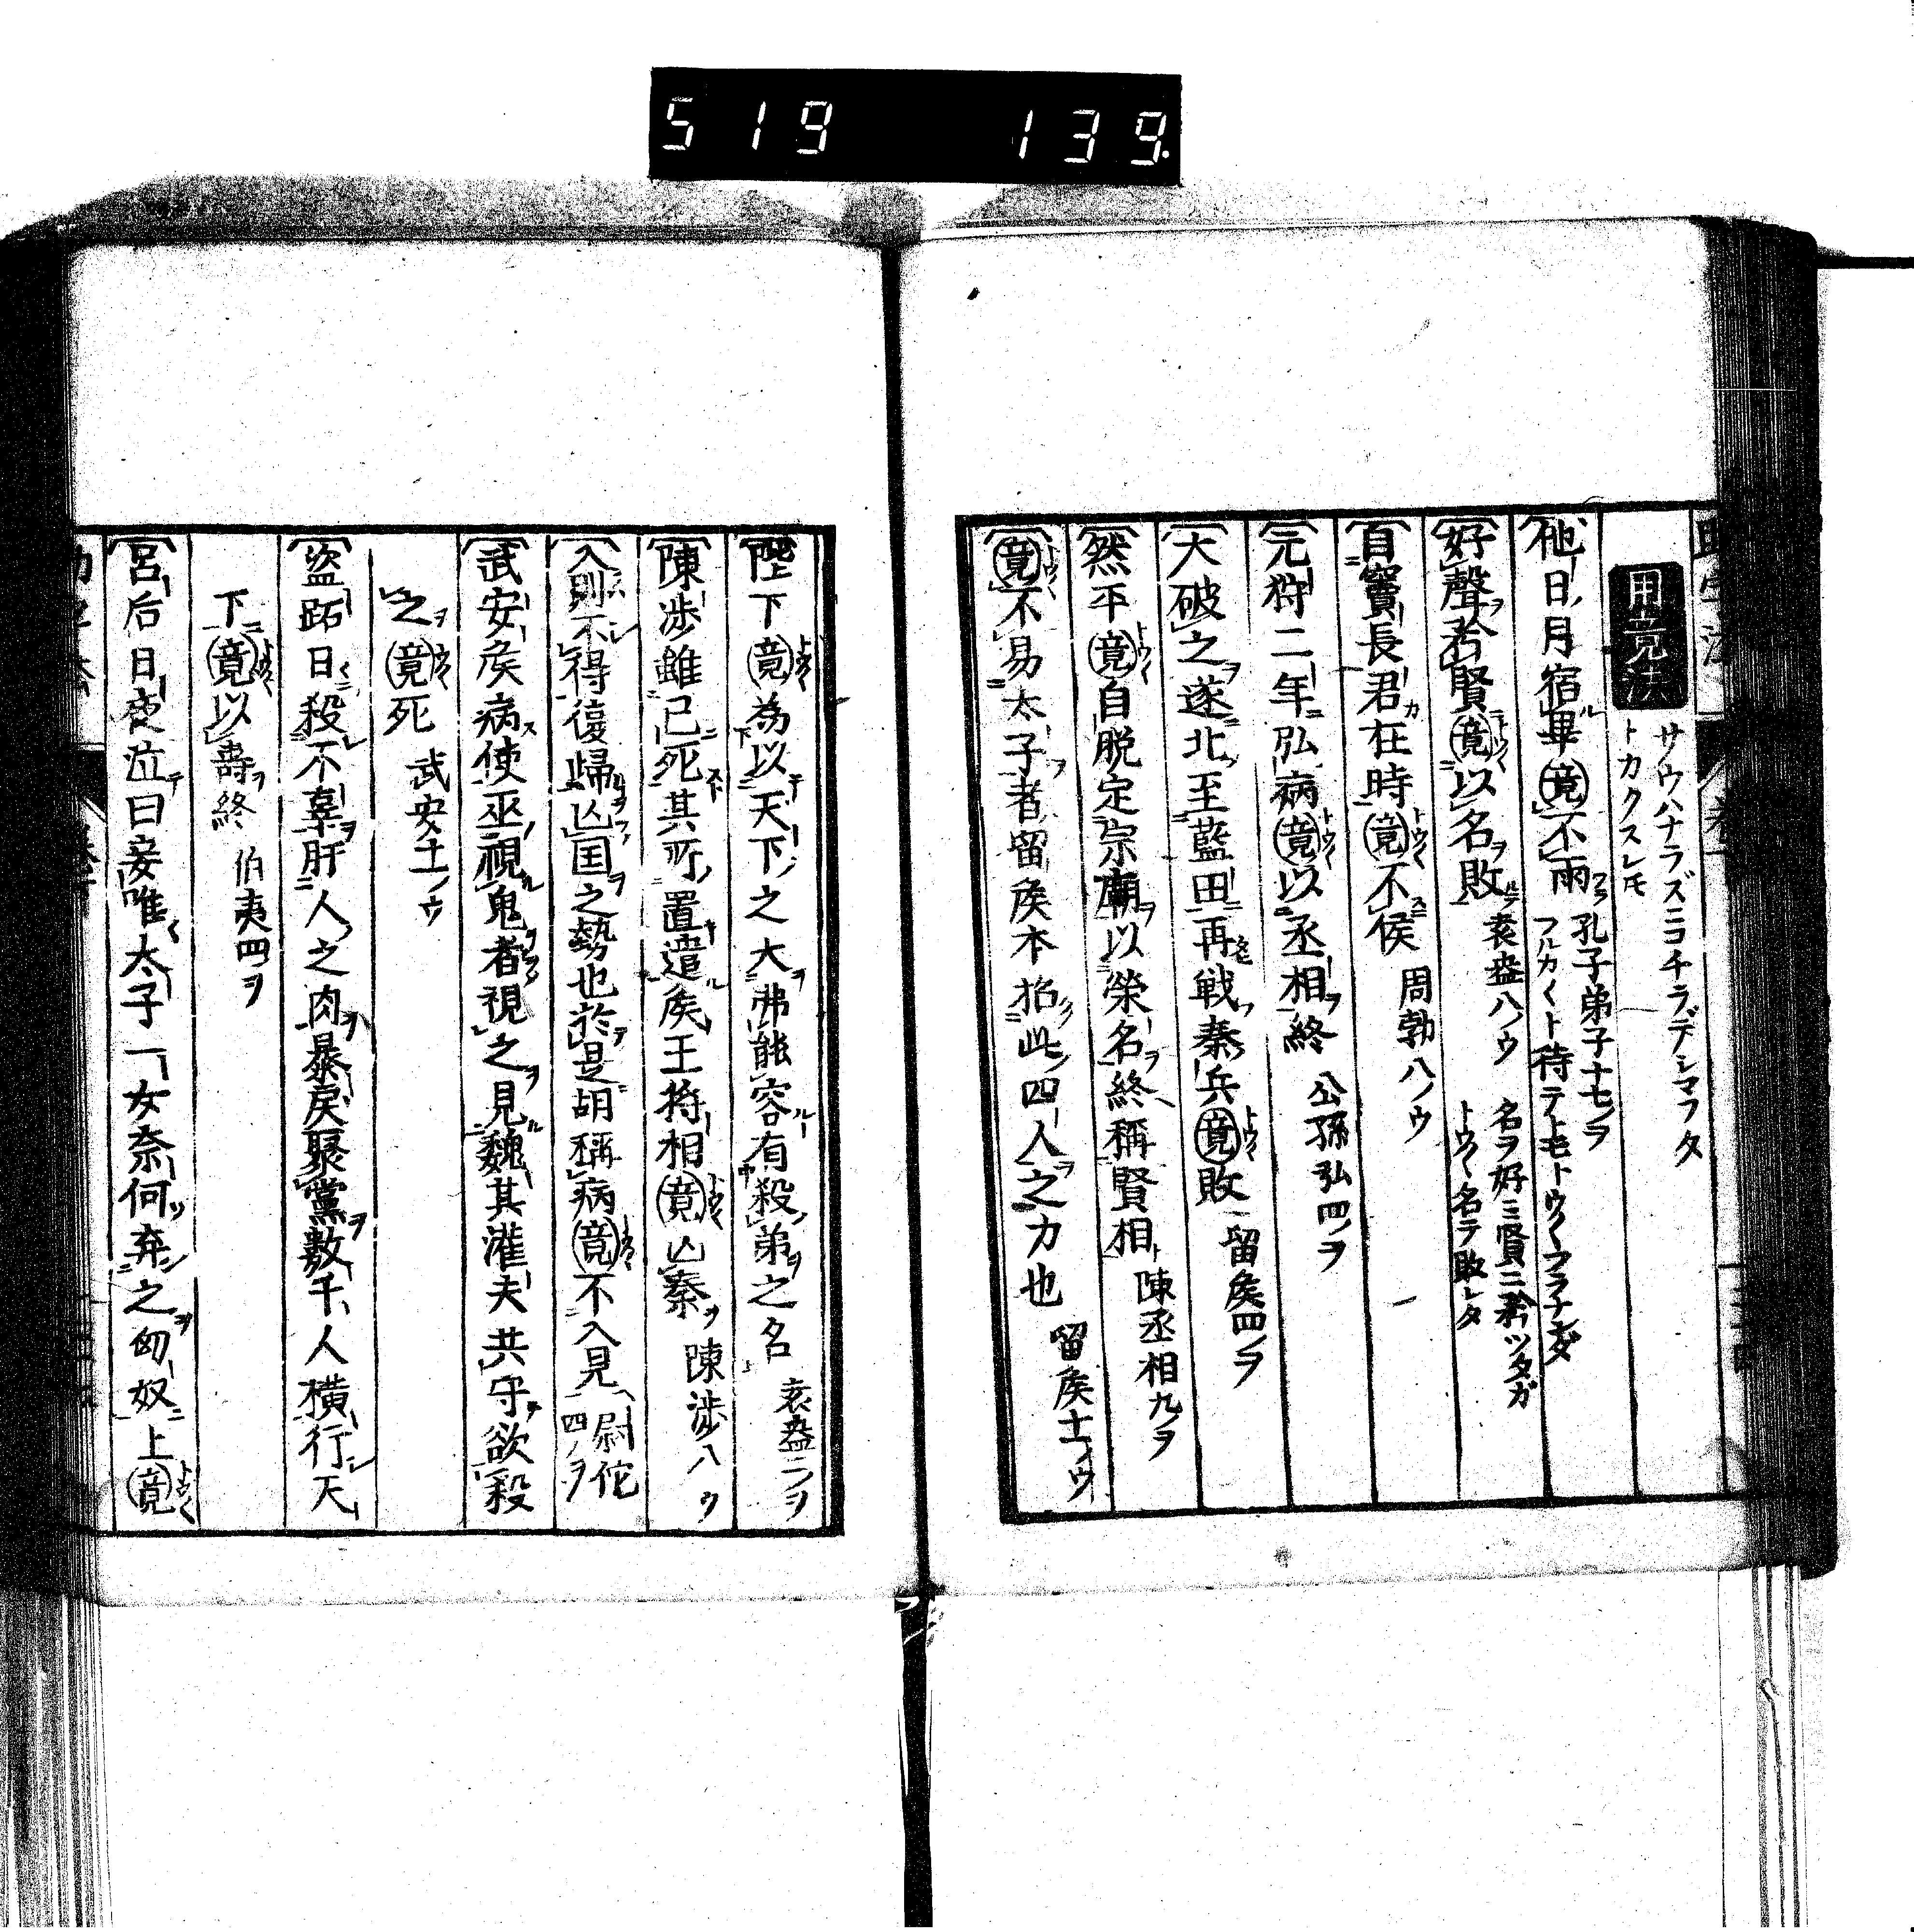 519 139.
用竟法
サウハナラズニコチラデシマフタ
トカクスレモ
他日月宿畢竟不雨
孔子弟子十七ノヲ
フルカくト待テトモトウくフラナンダ
好聲矜賢竟以名敗
袁盎八ノウ
名ヲ好ミ賢ニ矜ツタガ
トウく名テ敗レタ
自竇長君在時竟不侯 周勃八ノウ
元狩二年弘病竟以丞相終 公孫弘四ノヲ
大破之遂北至藍田再戦秦兵竟敗 留矦四ノヲ
然平竟自脱定宗廟以榮名終稱賢相 陳丞相九ノヲ
竟不易太子者留矦本招此四人之力也 留矦十一ノウ
陛下竟為以天下之大弗能容有殺弟之名 袁盎二ノヲ
陳渉雖已死其所置遣矦王将相竟亾秦 陳渉八ノウ
入則不得復歸亾国之勢也於是胡稱病竟不入見 尉佗四ノヲ
武安矦病使巫視鬼者視之見魏其灌夫共守欲殺
之竟死 武安十一ノウ
盗跖日殺不辜肝人之肉暴戻聚黨数千人横行天
下竟以壽終 伯夷四ノヲ
呂后日夜泣曰妾唯太子一女奈何弃之匈奴上竟